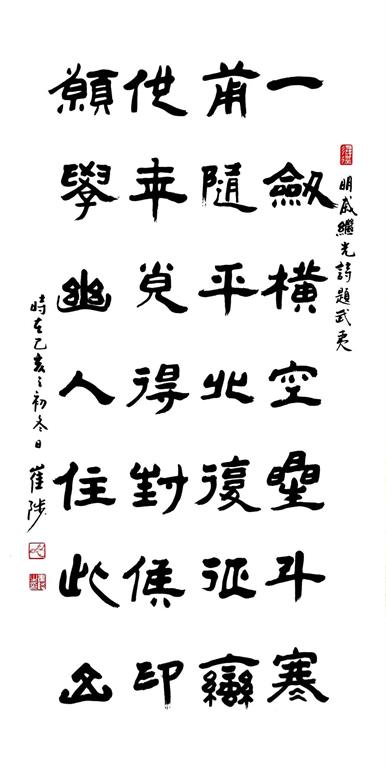 明戚繼光詩題武夷
一劍橫空星斗寒
甫隨平北復征蠻
他年覓得封侯印
願學幽人住此山
時在乙亥之初冬日 崔陟